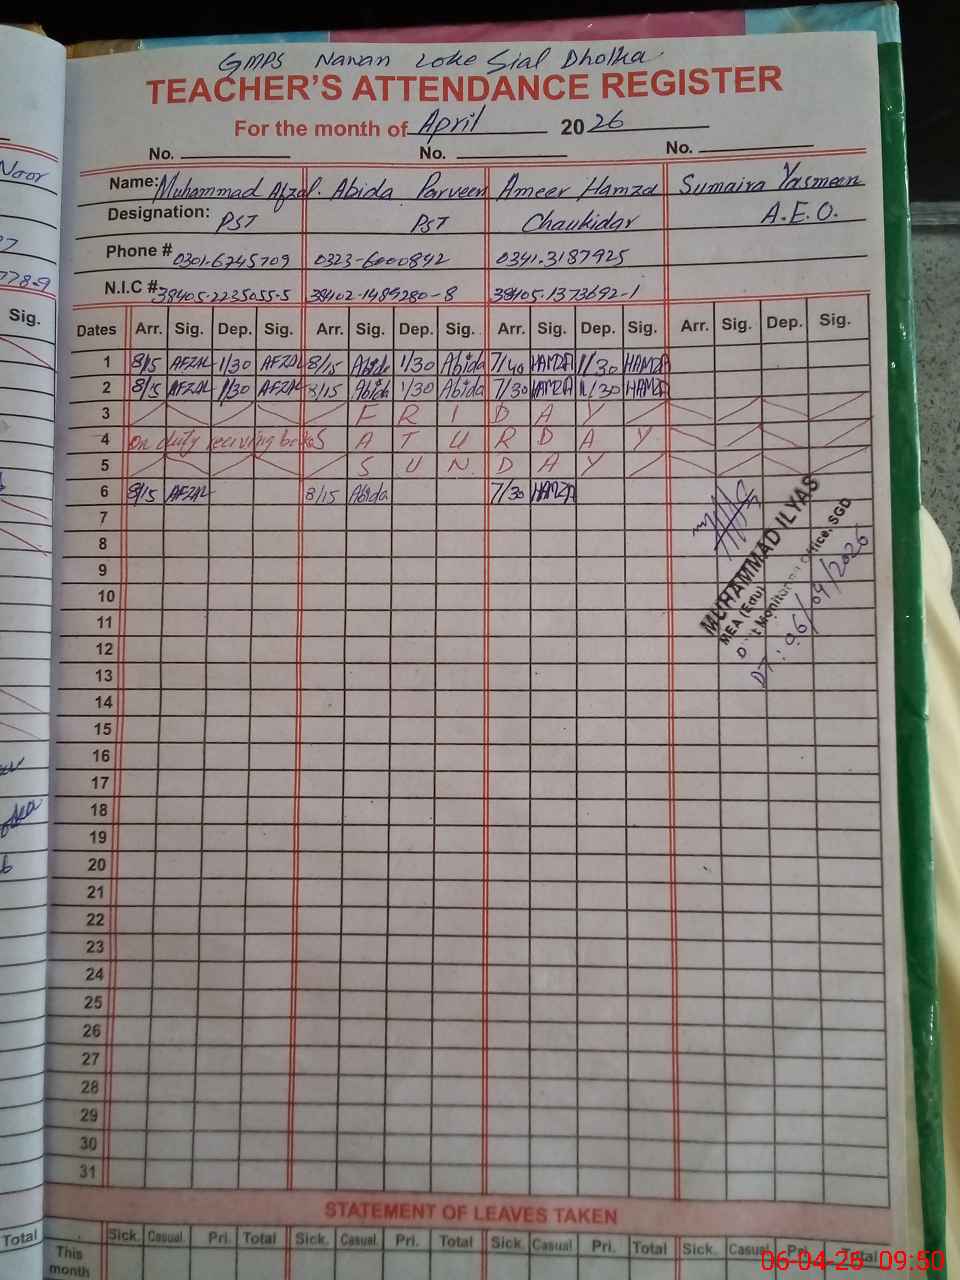 GMPS Nawan Loke Sial Dholka
TEACHER'S ATTENDANCE REGISTER
For the month of April 2026
No. No. No.
Name: Muhammad Afzal. Abida Parveen Ameer Hamza Sumaira Yasmeen
Designation: PST PST Chaukidar A.E.O.
Phone # 0301-6745709 0323-6000842 0341.3187925
N.I.C #. 38405-2235055-5 38402-1489280-8 38405-1373692-1
Dates Arr. Sig. Dep. Sig. Arr. Sig. Dep. Sig. Arr. Sig. Dep. Sig. Arr. Sig. Dep. Sig.
1 8/15 AFZAL 1/30 AFZAL 8/15 Abida 1/30 Abida 7/40 HAMZA 1/30 HAMZA
2 8/15 AFZAL 1/30 AFZAL 8/15 Abida 1/30 Abida 7/30 HAMZA 1/30 HAMZA
3 F R I D A Y
4 on duty reciving books S A T U R D A Y
5 S U N D A Y
6 8/15 AFZAL 8/15 Abida 7/30 HAMZA
7
8
9
10
11
12
13
14
15
16
17
18
19
20
21
22
23
24
25
26
27
28
29
30
31
MUHAMMAD ILYAS
MEA (Edu)
Monitoring Office, SGD
DT: 06/04/2026
STATEMENT OF LEAVES TAKEN
Sick. Casual. Pri. Total Sick. Casual. Pri. Total Sick. Casual. Pri. Total Sick. Casual. Pri. Total
This month
Noor
778-9
Sig.
Total
06-04-26 09:50